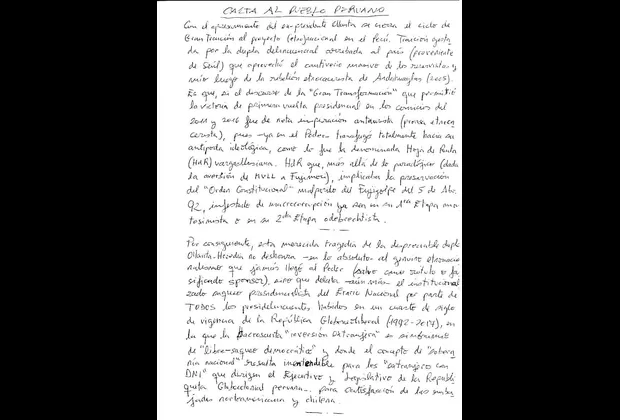 CARTA AL PUEBLO PERUANO
Con el apresamiento del ex-presidente Ollanta se cierra el ciclo de
Gran Traición al proyecto (etno)nacional en el Perú. Traición gesta
da por la dupla delincuencial arribada al país (proveniente
de Seúl) que aprovechó el cautiverio masivo de los reservistas y
mío luego de la rebelión etnocacerista de Andahuaylas (2005).
Es que, en el discurso de la "Gran Transformación" que permitió
la victoria de primera vuelta presidencial en los comicios del
2011 y 2016 fue de neta inspiración antaurista (prensa etnoca
cerista), pues -ya en el Poder- transfugó totalmente hacia su
antípoda ideológica, como lo fue la denominada Hoja de Ruta
(HdR) vargasllosiana. HdR que, más allá de lo paradójico (dada
la aversión de MVLL a Fujimori), implicaba la preservación
del "Orden Constitucional" malparido del Fujigolpe del 5 de Abr.
92, infestado de macrocorrupción ya sea en su 1ra Etapa mon
tesinista o en su 2da Etapa odebrechtista.
Por consiguiente, esta merecida tragedia de la despreciable dupla
Ollanta-Heredia no deshonra -en lo absoluto- al genuino etnonacio
nalismo que jamás llegó al Poder (salvo como rótulo o fa
sificando sponsor), sino que delata -aún más- el institucional
izado saqueo presidencialista del Erario Nacional por parte de
TODOS los presidelincuentes, habidos en un cuarto de siglo
de vigencia de la República Globocolonial (1992-2017), en
la que la sacrosanta "inversión extranjera" es sinónimo
de "libre-saqueo democrático" y donde el concepto de "sobera
nía nacional" resulta inentendible para los "extranjeros con
DNI" que dirigen el Ejecutivo y Legislativo de la Repúbli
queta Globocolonial peruana... para satisfacción de las emba
jadas norteamericana y chilena.